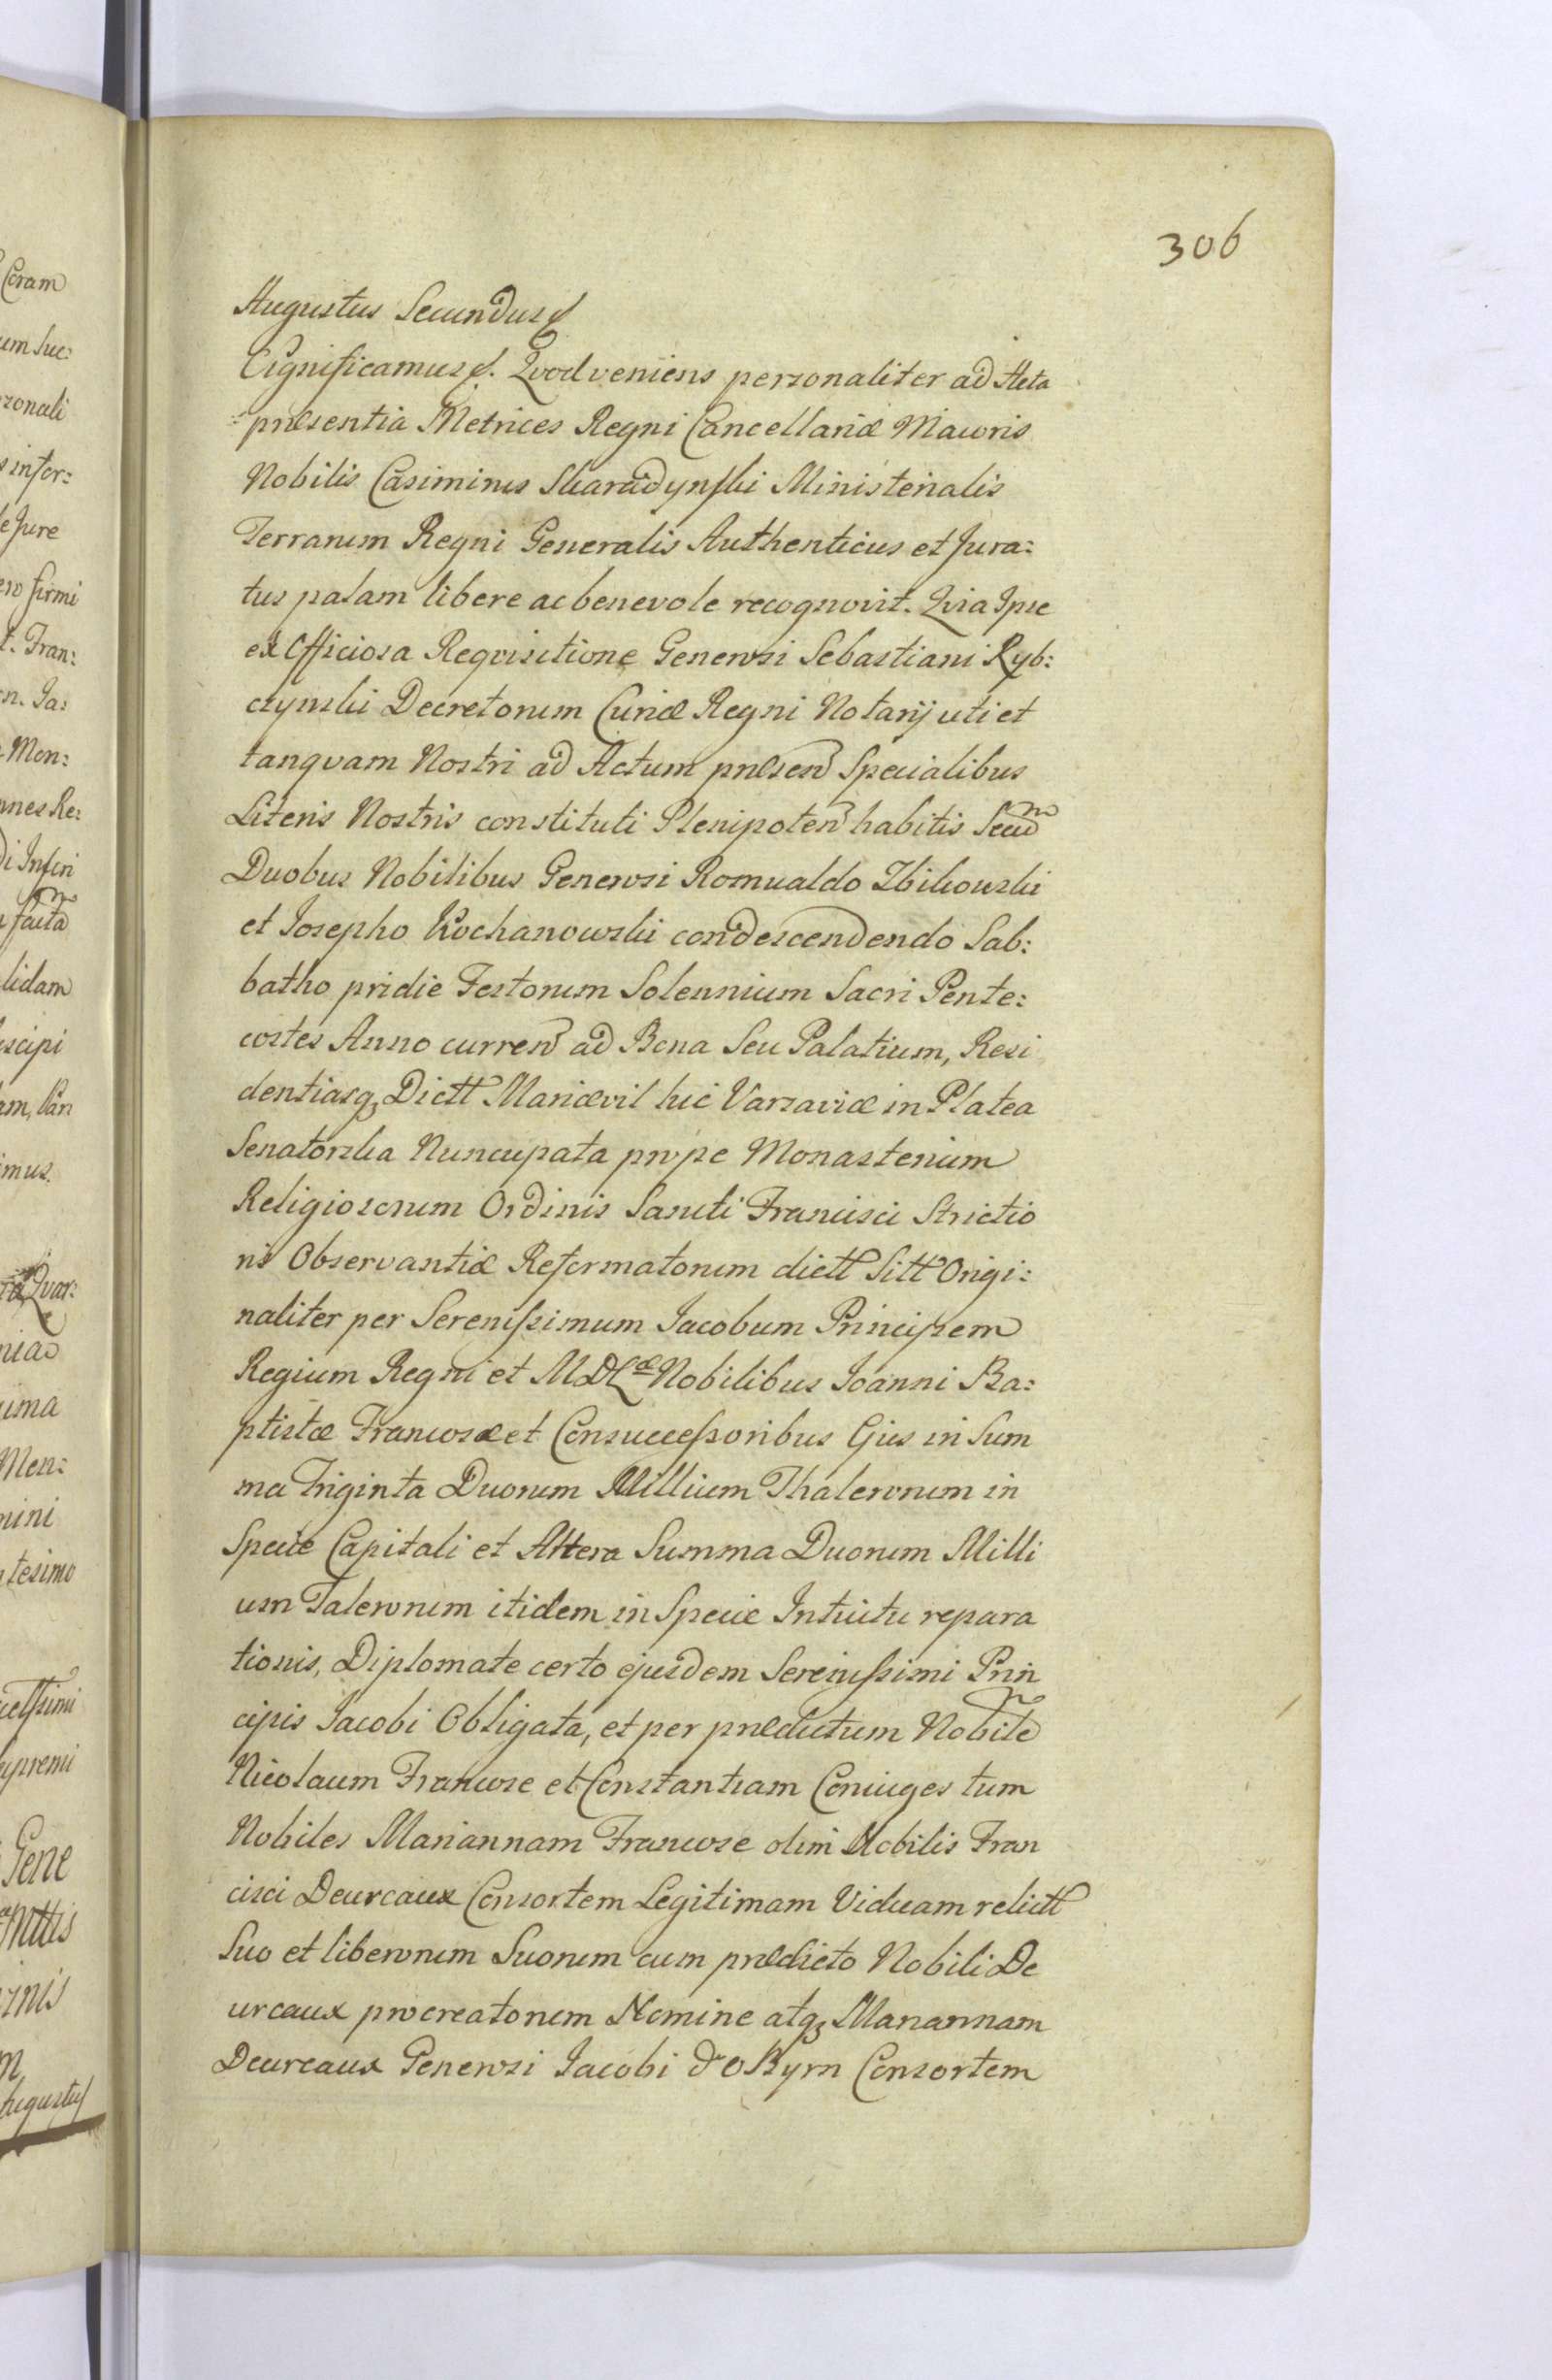 306
Augustus Secundus
Significamus. Qvod veniens personaliter ad Acta
præsentia Metrices Regni Cancellariæ Maioris
Nobilis Casimirus Skaradynski Ministerialis
Terrarum Regni Generalis Authenticus et Jura:
tus palam libere ac benevole recognovit. Qvia Ipse
ex Officiosa Reqvisitione Generosi Sebastiani Ryb:
czynski Decretorum Curiæ Regni Notarij uti et
tanqvam Nostri ad Actum præsen Specialibus
Literis Nostris constituti Plenipoten habitis Secum
Duobus Nobilibus Generosi Romualdo Zbikowski
et Josepho Kochanowski condescendendo Sab:
batho pridie Festorum Solennium Sacri Pente:
costes Anno curren ad Bona Seu Palatium, Resi
dentiasq Dictt Mariævil hic Varsaviæ in Platea
Senatorska Nuncupata prope Monasterium
Religiosorum Ordinis Sancti Francisci Strictio
ris Observantiæ Reformatorum dictt Sitt Origi:
naliter per Serenissimum Jacobum Principem
Regium Regni et MDLæ Nobilibus Joanni Ba:
ptistæ Francosæ et Consuccessoribus Ejus in Sum
ma Triginta Duorum Millium Thalerorum in
Specie Capitali et Altera Summa Duorum Milli
um Talerorum itidem in Specie Intuitu repara
tionis, Diplomate certo ejusdem Serenissimi Prin
cipis Jacobi Obligata, et per prædictum Nobile
Nicolaum Francose et Constantiam Coniuges tum
Nobiles Mariannam Francose olim Nobilis Fran
cisci Deurcaux Consortem Legitimam Viduam relictt
Suo et liberorum Suorum cum prædicto Nobili De
urcaux procreatorum Nomine atq Mariannam
Deurcaux Generosi Jacobi d'oByrn Consortem